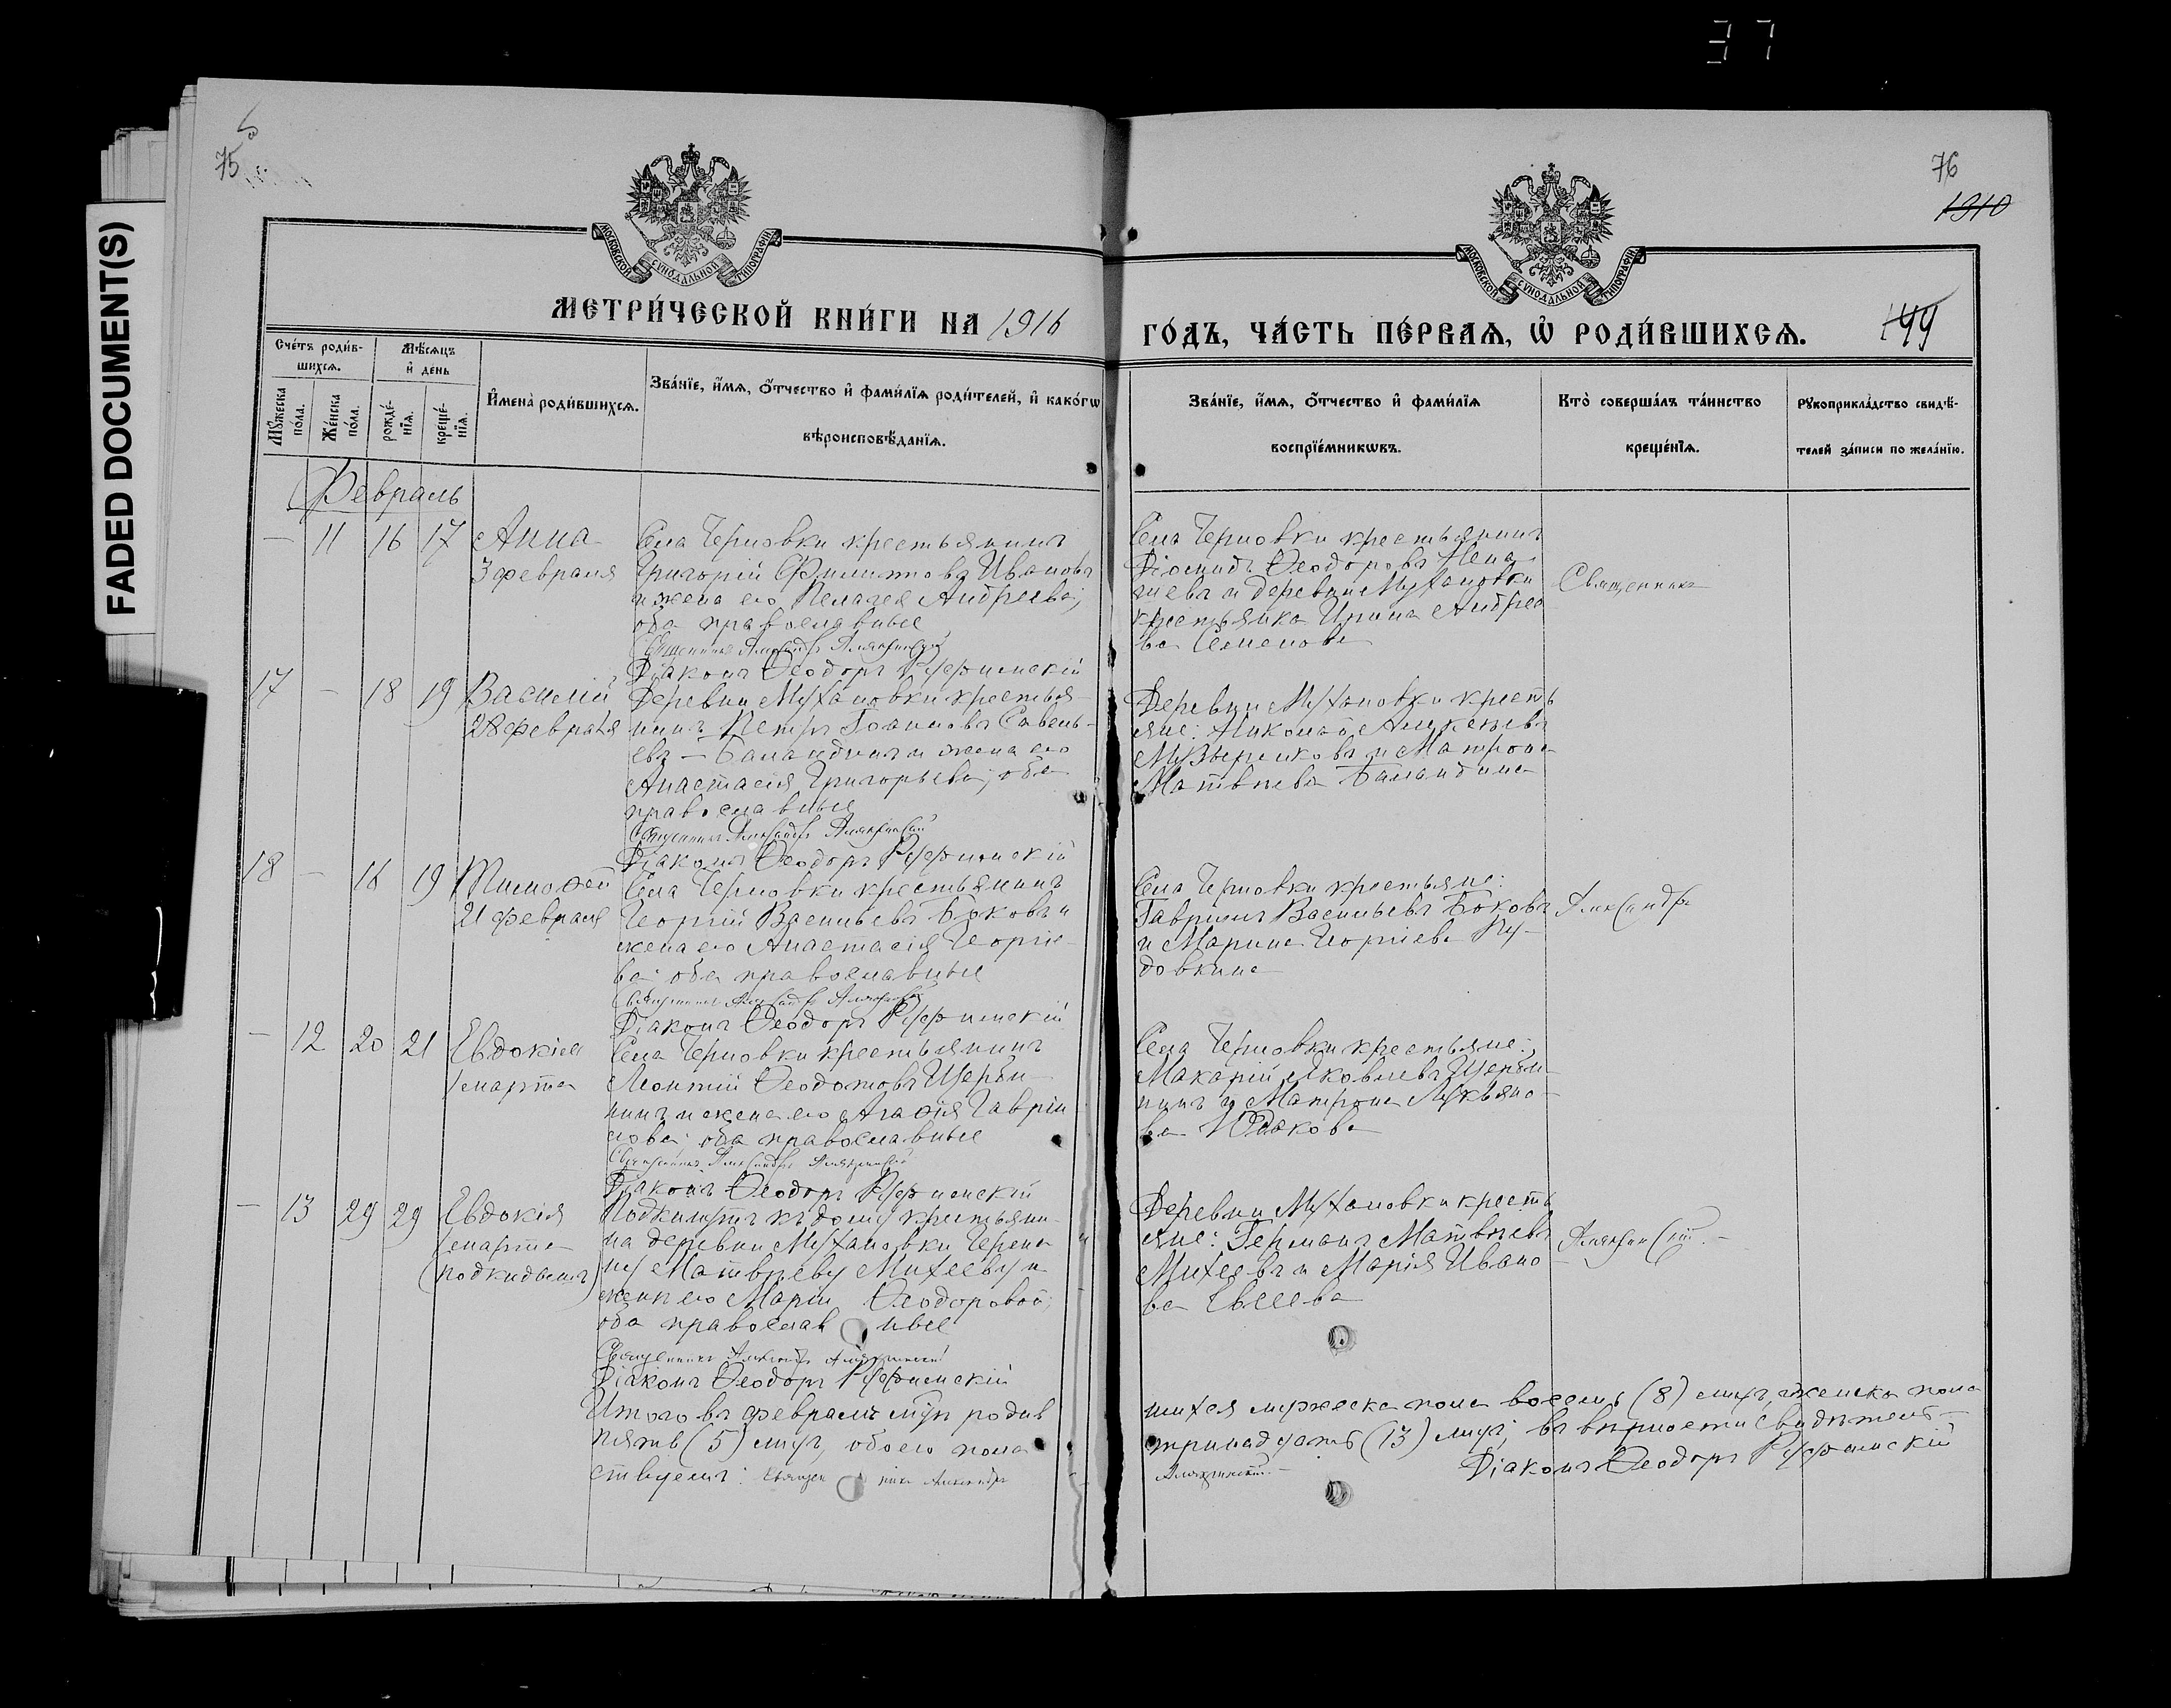 37
FADED DOCUMENT(S)
75
76
1910
МОСКОВСКОЙ СѴНОДАЛЬНОЙ ТИПОГРАФІИ
МОСКОВСКОЙ СѴНОДАЛЬНОЙ ТИПОГРАФІИ
МЕТРИ́ЧЕСКОЙ КНИ́ГИ НА 1916
ГО́ДЪ, ЧА́СТЬ ПЕ́РВАѦ, Ѡ҆ РОДИ́ВШИХСѦ.
Сче́тъ роди́в-
шихсѧ.
Мꙋ́жеска по́ла.
Же́нска по́ла.
Мѣ́сѧцъ
и҆ де́нь
рожде́-
нїѧ.
креще́-
нїѧ.
И҆мена̀ роди́вшихсѧ.
Зва́нїе, и҆́мѧ, ѻ҆́тчество и҆ фами́лїѧ роди́телей, и҆ како́гѡ
вѣроисповѣ́данїѧ.
Зва́нїе, и҆́мѧ, ѻ҆́тчество и҆ фами́лїѧ
воспрїе́мникѡвъ.
Кто̀ соверша́лъ та́инство
креще́нїѧ.
Рꙋкоприкла́дство свидѣ́-
телей за́писи по жела́нїю.
Февраль
— 11 16 17 Анна
3 февраля
Села Черновки крестьянинъ
Григорій Филиповъ Ивановъ
и жена его Пелагея Андреева;
оба православные
Священникъ Александръ
Діаконъ Ѳеодоръ
Села Черновки крестьянинъ
Діомидъ Ѳеодоровъ Нена-
шевъ и деревни Мухановки
крестьянка Ирина Андрее-
ва Семенова
Священникъ
17 — 18 19 Василій
28 февраля
Деревни Мухановки крестья-
нинъ Петръ Іоанновъ Савель-
евъ — Баландинъ и жена его
Анастасія Григорьева; оба
православные
Священникъ Александръ
Діаконъ Ѳеодоръ
Деревни Мухановки кресть
яне: Николай Алексѣевъ
и Матрона
Матвѣева Баландина
18 — 18 19 Тимоѳей
21 февраля
Села Черновки крестьянинъ
Георгій Васильевъ Боковъ и
жена его Анастасія Георгіе-
ва; оба православные
Священникъ Александръ
Діаконъ Ѳеодоръ
Села Черновки крестьяне:
Гавріилъ Васильевъ Боковъ
и Марина Георгіева Пу-
довкина
Александръ
— 12 20 21 Евдокія
1 марта
Села Черновки крестьянинъ
Леонтій Ѳеодотовъ Щерби-
нинъ и жена его Агаѳія Гаврии-
лова; оба православные
Священникъ Александръ
Діаконъ Ѳеодоръ
Села Черновки крестьяне:
Макарій Яковлевъ Щерби-
нинъ и Матрона Лукьяно-
ва Юдакова
— 13 29 29 Евдокія
1 марта
(подкидышъ)
Подкинута къ дому крестьяни-
на деревни Мухановки Герма-
ну Матвѣеву Михееву и
женѣ его Маріи Ѳеодоровой;
оба православные
Священникъ Александръ
Діаконъ Ѳеодоръ
Деревни Мухановки кресть
яне: Германъ Матвѣевъ
Михеевъ и Марія Ивано-
ва Евсеева
Итого въ февралѣ мѣс. родив
шихся мужеска пола восемь (8) муж., женска пола
пять (5) муж., обоего пола
тринадцать (13) муж.; въ вѣрности свидѣтель-
ствуемъ: Священникъ Александръ
Діаконъ Ѳеодоръ